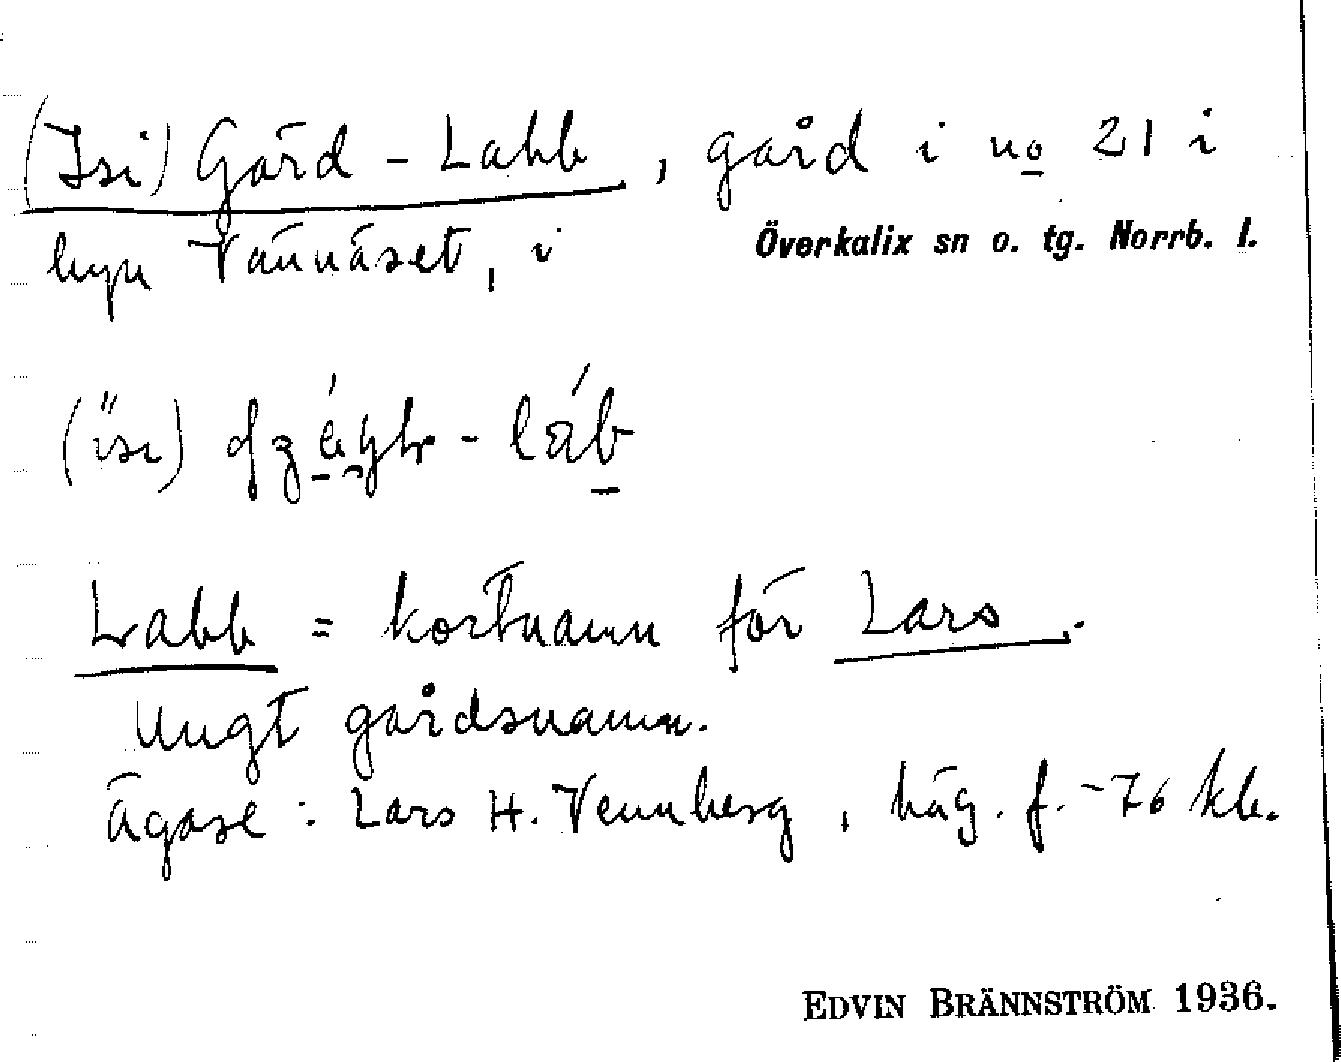 (Isi) Gärd-Labb, gård i no 21 i
byn Vännäset, i Överkalix sn o. tg. Norrb. l.
Labb = kortnamn för Lars.
Ungt gårdsnamn.
Ägare: Lars H. Vennberg, häg. f. -76 kb.
EDVIN BRÄNNSTRÖM 1936.